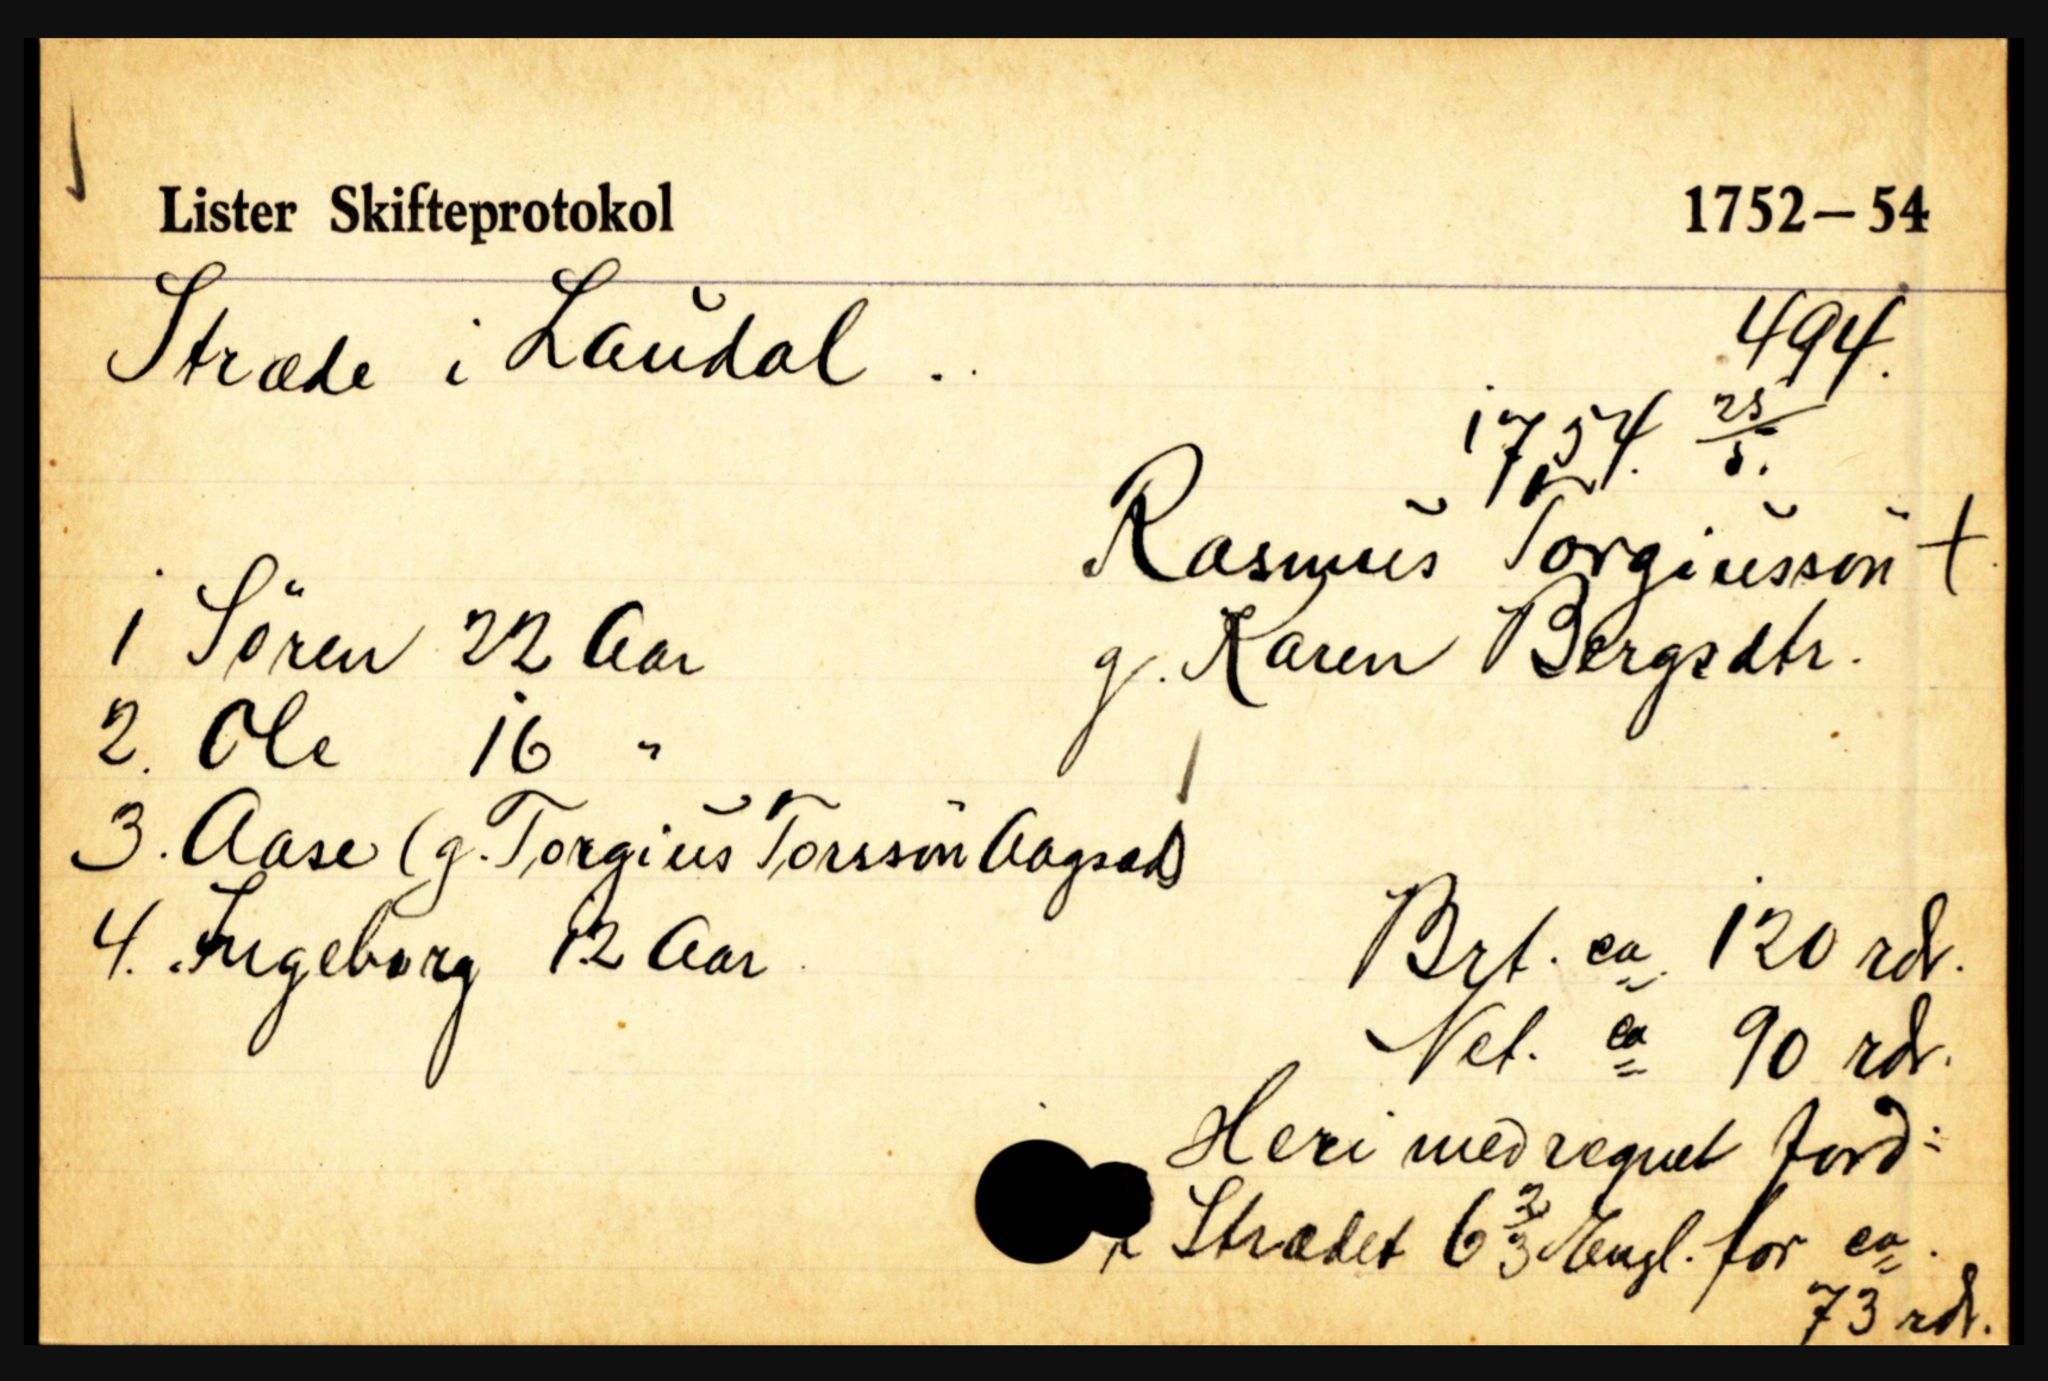 Lister Skifteprotokol 1752-54
Stræde i Laudal. 494.
1754. 25/5.
Rasmus Torgiussön +.
g. Karen Bergsdtr.
1 Sören 22 Aar
2. Ole 16 "
3. Aase (g. Torgius Torssön Aagsæd)
4. Ingeborg 12 Aar
Brt. ca. 120 rdr.
Net. ca 90 rdr.
Heri medregnet Jord:
i Strædet 6 2/3 Engl. for ca.
73 rdr.